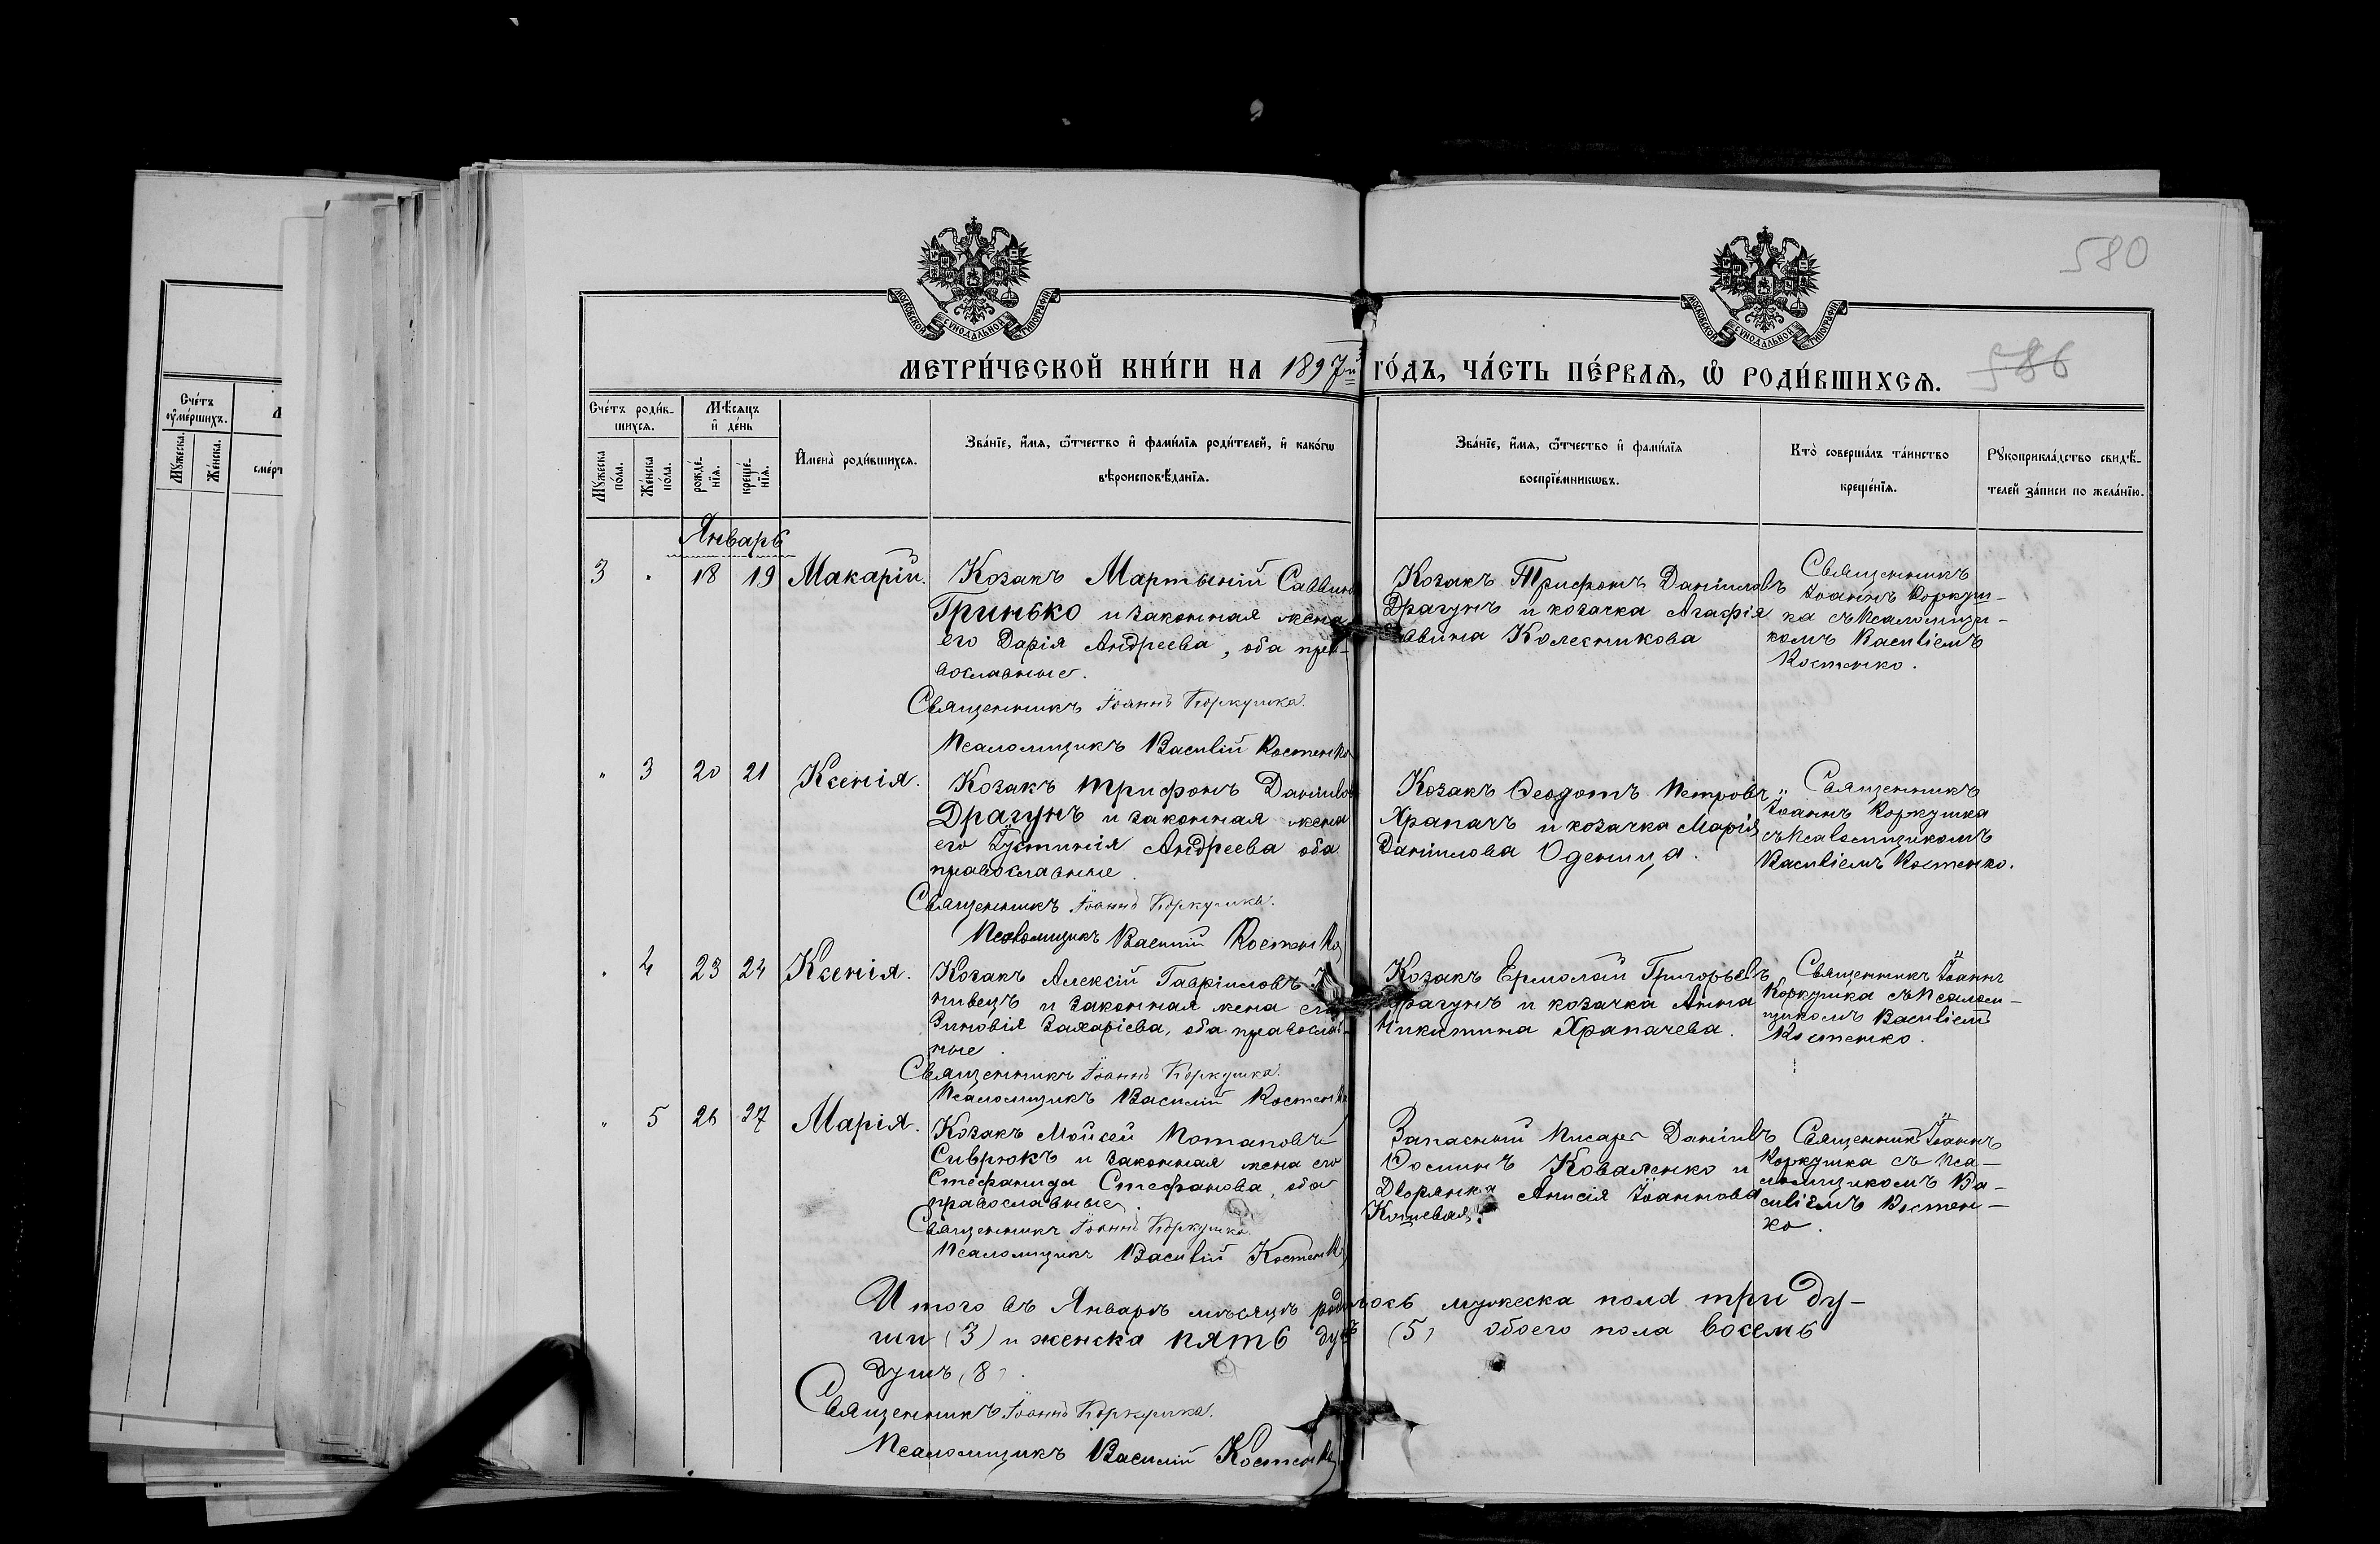 580
МОСКОВСКОЙ СѴНОДАЛЬНОЙ ТИПОГРАФІИ
МОСКОВСКОЙ СѴНОДАЛЬНОЙ ТИПОГРАФІИ
МЕТРИ́ЧЕСКОЙ КНИ́ГИ НА 1897й ГО́ДЪ, ЧА́СТЬ ПЕ́РВАѦ, Ѡ҆ РОДИ́ВШИХСѦ.
586
Сче́тъ оу҆ме́ршихъ.
Мꙋ́жеска.
Же́нска.
Сче́тъ роди́в-
шихсѧ.
Мꙋ́жеска по́ла.
Же́нска по́ла.
Мѣ́сѧцъ
и҆ де́нь
рожде́-
нїѧ.
креще́-
нїѧ.
И҆мена̀ роди́вшихсѧ.
Зва́нїе, и҆́мѧ, ѻ҆́тчество и҆ фами́лїѧ роди́телей, и҆ како́гѡ
вѣроисповѣ́данїѧ.
Зва́нїе, и҆́мѧ, ѻ҆́тчество и҆ фами́лїѧ
воспрїе́мникѡвъ.
Кто̀ соверша́лъ та́инство
креще́нїѧ.
Рꙋкоприкла́дство свидѣ́-
телей за́писи по жела́нїю.
Январь
3 " 18 19 Макарій.
Козакъ Мартиній Саввинъ
Гринько и законная жена
его Дарія Андреева, оба пра-
вославные.
Священникъ Іоаннъ Коркушка.
Псаломщикъ Василій Костенко
Козакъ Трифонъ Даніиловъ
Драгунъ и козачка Агафія
Саввина Колесникова
Священникъ
Іоаннъ Коркуш-
ка съ Псаломщи-
комъ Василіемъ
Костенко.
" 3 20 21 Ксенія.
Козакъ Трифонъ Даніиловъ
Драгунъ и законная жена
его Іустинія Андреева оба
православные.
Священникъ Іоаннъ Коркушка.
Псаломщикъ Василій Костенко
Козакъ Ѳеодотъ Петровъ
Храпачъ и козачка Марія
Даніилова Оденица.
Священникъ
Іоаннъ Коркушка
съ Псаломщикомъ
Василіемъ Костенко.
" 4 23 24 Ксенія.
Козакъ Алексій Гавріиловъ
нивецъ и законная жена его
Зиновія Захаріева, оба православ-
ные.
Священникъ Іоаннъ Коркушка.
Псаломщикъ Василій Костенко
Козакъ Ермолай Григорьевъ
Драгунъ и козачка Анна
Никитина Храпачева.
Священникъ Іоаннъ
Коркушка съ Псалом-
щикомъ Василіемъ
Костенко.
" 5 26 27 Марія.
Козакъ Мойсей Потаповъ
Сиврюкъ и законная жена его
Стефанида Стефанова, оба
православные.
Священникъ Іоаннъ Коркушка.
Псаломщикъ Василій Костенко
Запасный Писарь Даніилъ
Іосиинъ Коваленко и
Дворянка Анисія Іоаннова
Кошевая.
Священникъ Іоаннъ
Коркушка съ Пса-
ломщикомъ Ва-
силіемъ Костен-
ко.
Итого въ Январѣ мѣсяцѣ родилось мужеска пола три ду-
ши (3) и женска пять душъ (5) обоего пола восемь
душъ (8).
Священникъ Іоаннъ Коркушка.
Псаломщикъ Василій Костенко